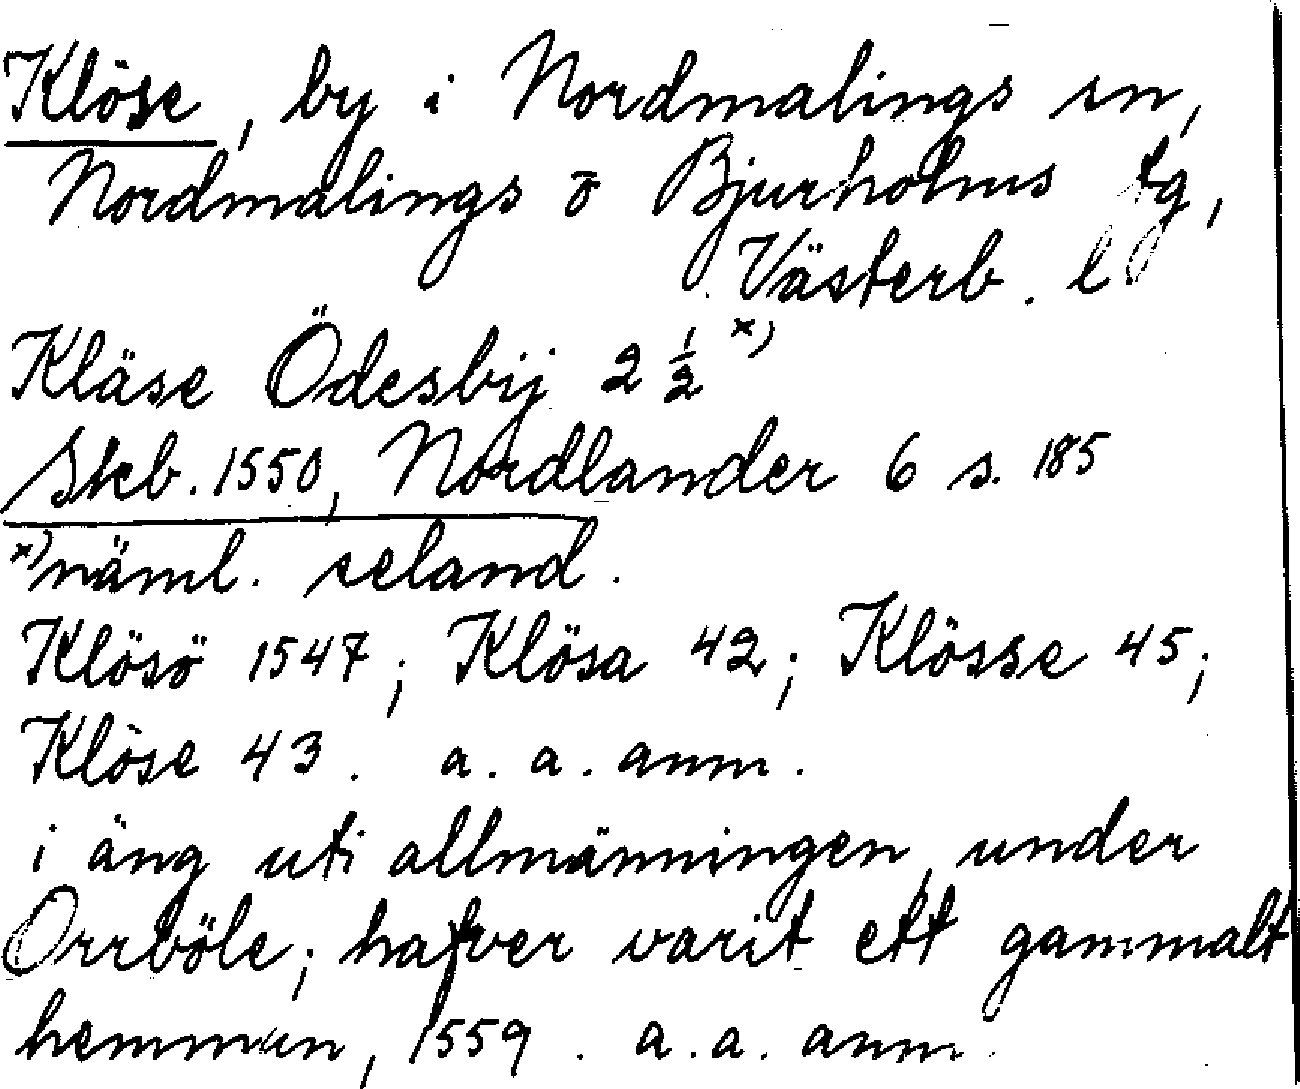 Klöse, by i Nordmalings sn,
Nordmalings o Bjurholms tg,
Västerb. l
Kläse Ödesbij 2 ½ x)
Skb. 1550, Nordlander 6 s. 185
x) näml. seland.
Klösö 1547; Klösa 42; Klösse 45;
Klöse 43. a. a. anm.
i äng uti allmänningen, under
Orrböle; hafver varit ett gammalt
hemman, 1559. a. a. anm.